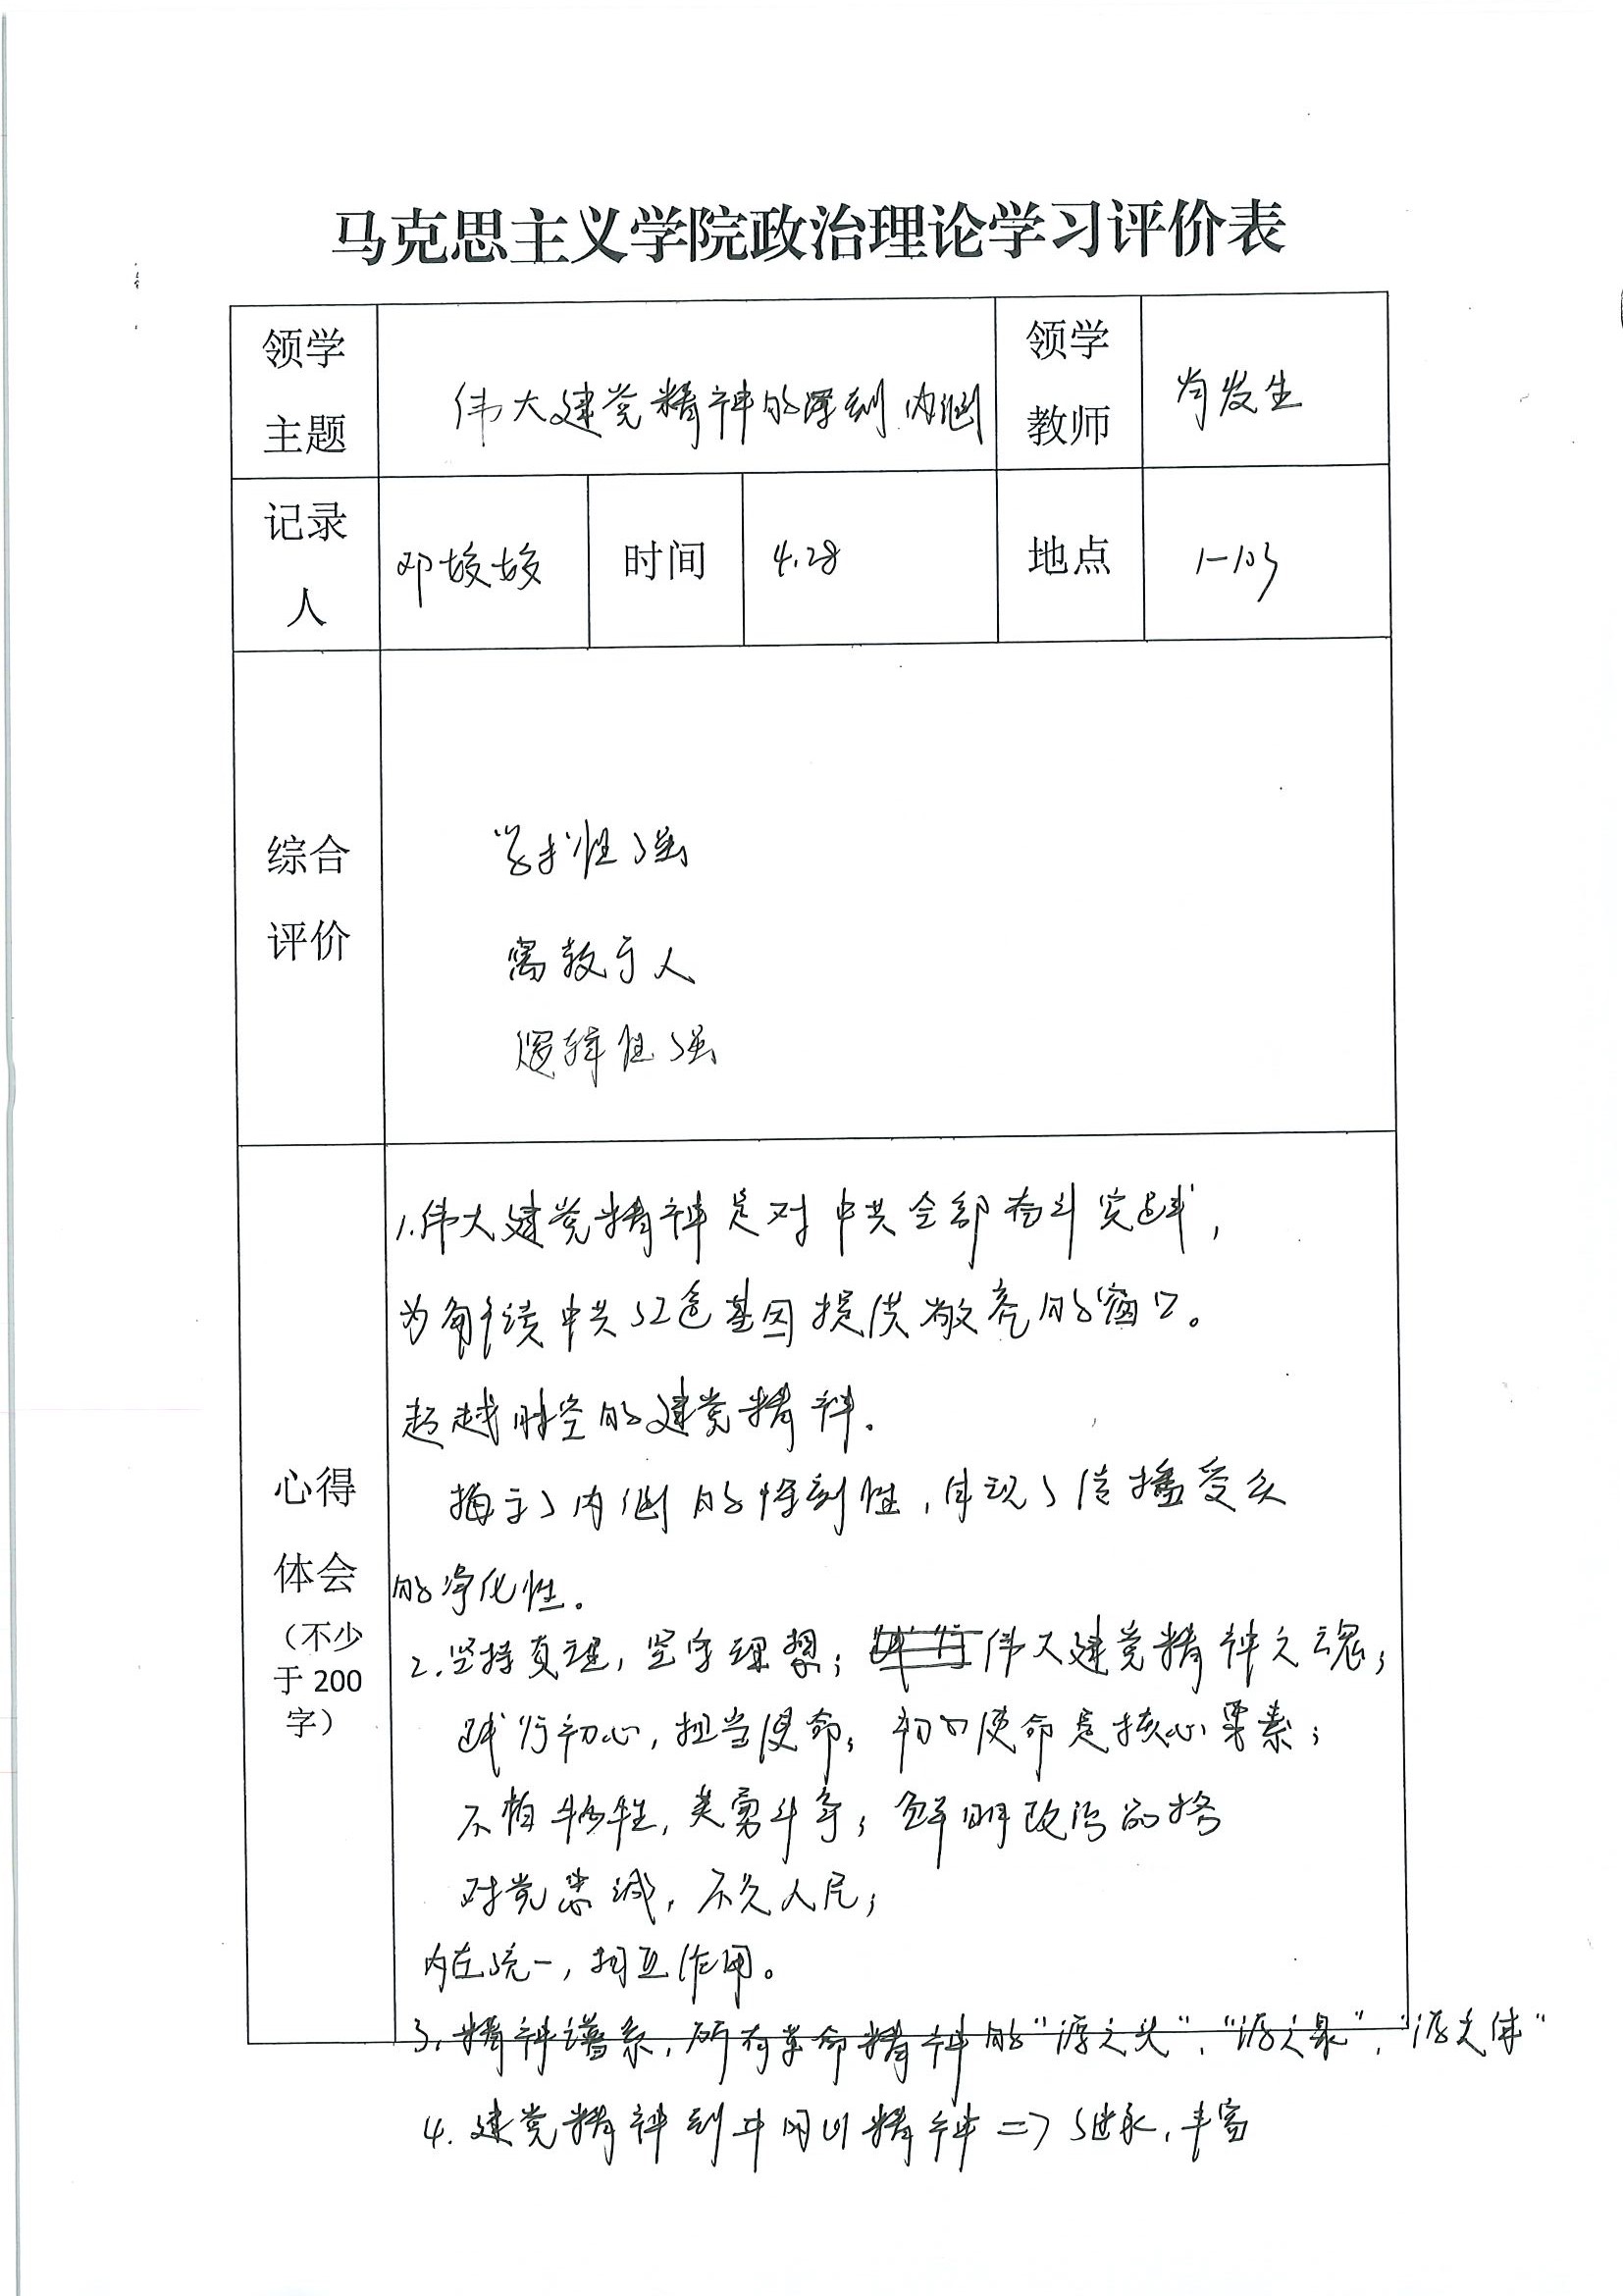 马克思主义学院政治理论学习评价表
领学主题 伟大建党精神的深刻内涵 领学教师 肖发生
记录人 邓姣姣 时间 4.28 地点 1-103
综合评价
学术性强
寓教于人
逻辑性强
心得体会（不少于200字）
1.伟大建党精神是对中共全部奋斗实践，
为解读中共红色基因提供敞亮的窗口。
超越时空的建党精神.
揭示了内涵的深刻性，体现了传播受众
的净化性。
2.坚持真理，坚守理想；伟大建党精神之魂；
践行初心，担当使命；初心使命是核心要素；
不怕牺牲，英勇斗争；鲜明政治品格
对党忠诚，不负人民；
内在统一，相互作用。
3.精神谱系，所有革命精神的“源之头”，“源之泉”，“源之体”
4.建党精神到井冈山精神=>继承，丰富